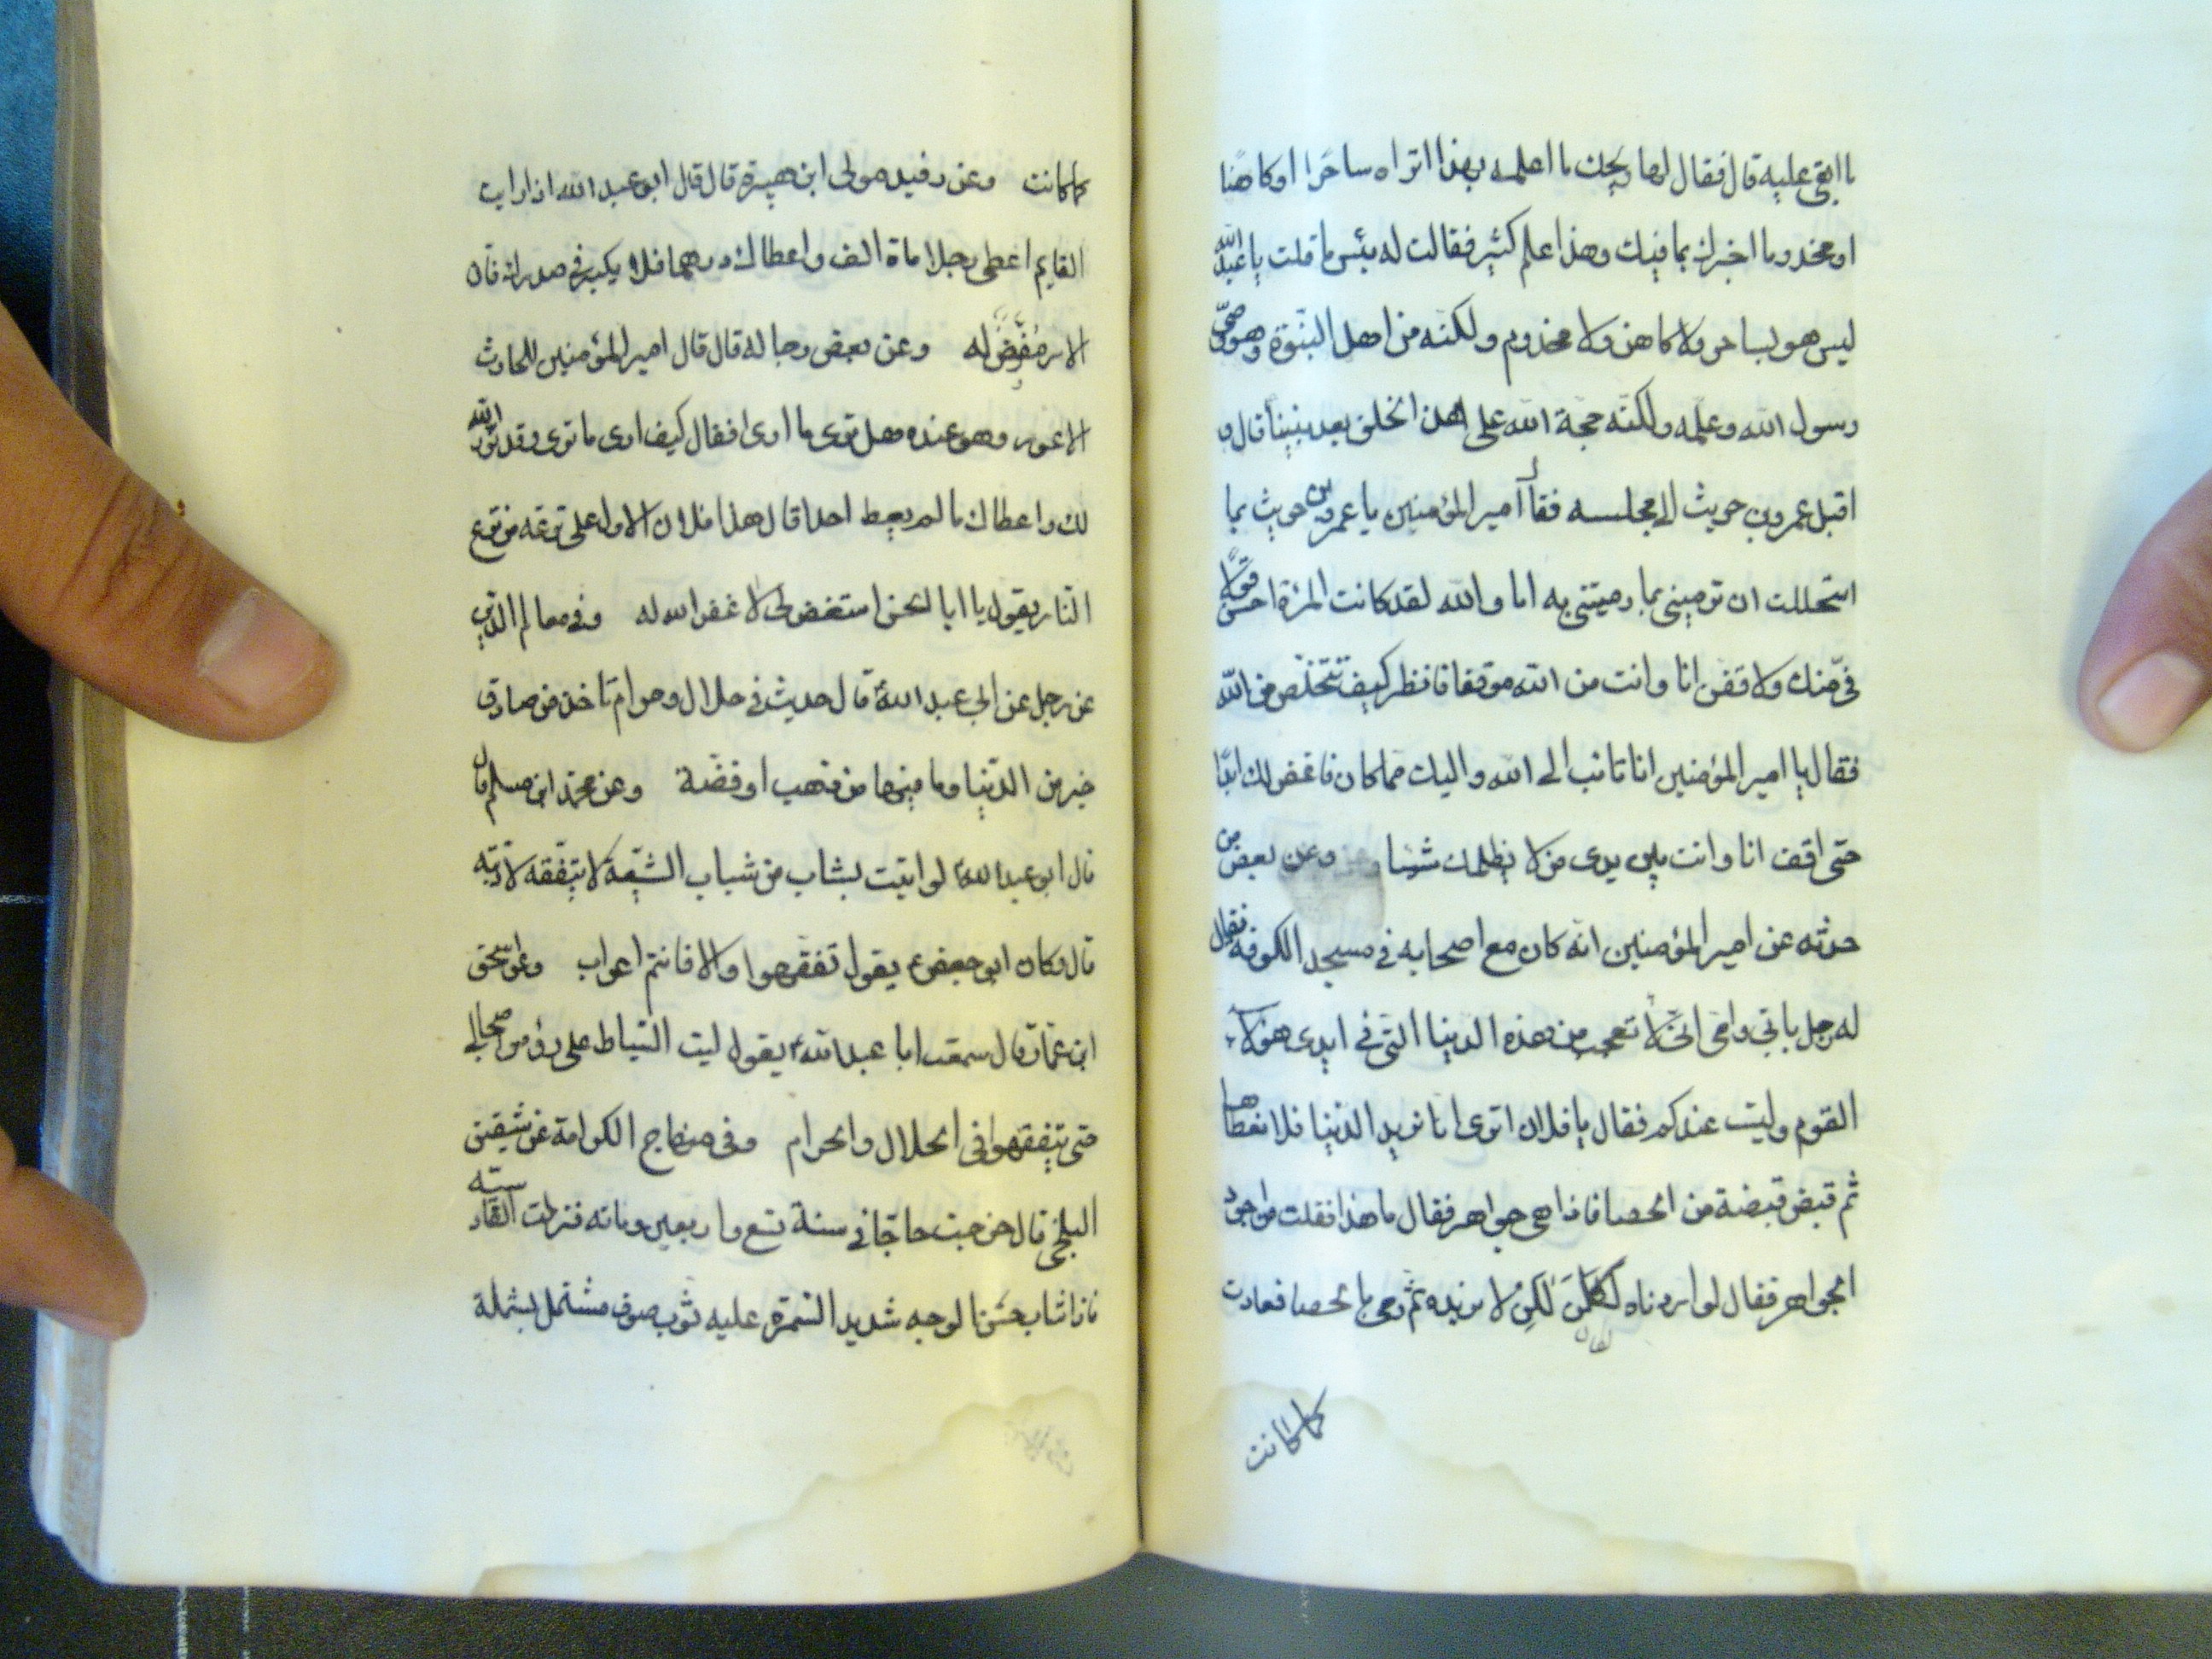 ما ابقى عليه قال فقال لها ويحك ما اعلمه بهذا اتراه ساحرا او كاهنا
او مخدوما اخبرك بما فيك وهذا علم كثير فقالت له بئس ما قلت يا عبد الله
ليس هو بساحر ولا كاهن ولا مخدوم ولكنه من اهل النبوة وهو وصي
رسول الله وعلمه ولكنه حجة الله على اهل الخلق بعد نبينا قال و
اقبل عمرو بن حريث الى مجلسه فقال امير المؤمنين يا عمرو بن حريث بما
استحللت ان ترميني بما رميتني به اما والله لقد كانت المرئة احسن قولا
في منك ولاقفن انا وانت من الله موقفا فانظر كيف تتخلص من الله
فقال يا امير المؤمنين انا تائب الى الله واليك مما كان فاغفر لك ابدا
حتى اقف انا وانت بين يدى من لا يظلمك شيئا وعن بعض من
حدثه عن امير المؤمنين انه كان مع اصحابه في مسجد الكوفه فقال
له رجل بابي وامي اني لا تعجب من هذه الدنيا التي في ايدى هؤلاء
القوم وليت عندكم فقال يا فلان اترى انا نريد الدنيا فلا نعطاها
ثم قبض قبضة من الحصا فاذا هي جواهر فقال ما هذا فقلت من اجود
الجواهر فقال لو اردناه لكان لكن لا نريده ثم رمى بالحصا فعادت
كما كانت
كما كانت وعن رفيد مولى ابن هبيرة قال قال ابو عبد الله اذا رايت
القايم اعطى رجلا ماة الف واعطاك درهما فلا يكبر في صدرك فان
الامر مفوض له وعن بعض رجاله قال قال امير المؤمنين للحارث
الاعور وهو عنده هل ترى ما ارى فقال كيف ارى ما ترى وقد نور الله
لك واعطاك ما لم يعط احدا قال هذا فلان الاول على ترعه من ترع
النار يقول يا ابا الحسن استغفر لي لا غفر الله له وفي معالم الدين
عن رجل عن ابي عبد الله قال حديث في حلال وحرام تاخذ من صادق
خير من الدنيا وما فيها من ذهب او فضة وعن محمد ابن مسلم قال
قال ابو عبد الله لو اتيت بشاب من شباب الشيعة لا يتفقه لادبته
قال وكان ابو جعفر ع يقول تفقهوا والا فانتم اعراب وعن اسحق
ابن عمار قال سمعت ابا عبد الله يقول ليت السياط على رؤس اصحابي
حتى يتفقهوا في الحلال والحرام وفي منهاج الكرامة عن شقيق
البلخي قال خرجت حاجا في سنة تسع واربعين ومائه فنزلت القادسيه
فاذا شاب حسن الوجه شديد السمرة عليه ثوب صوف مشتمل بشملة